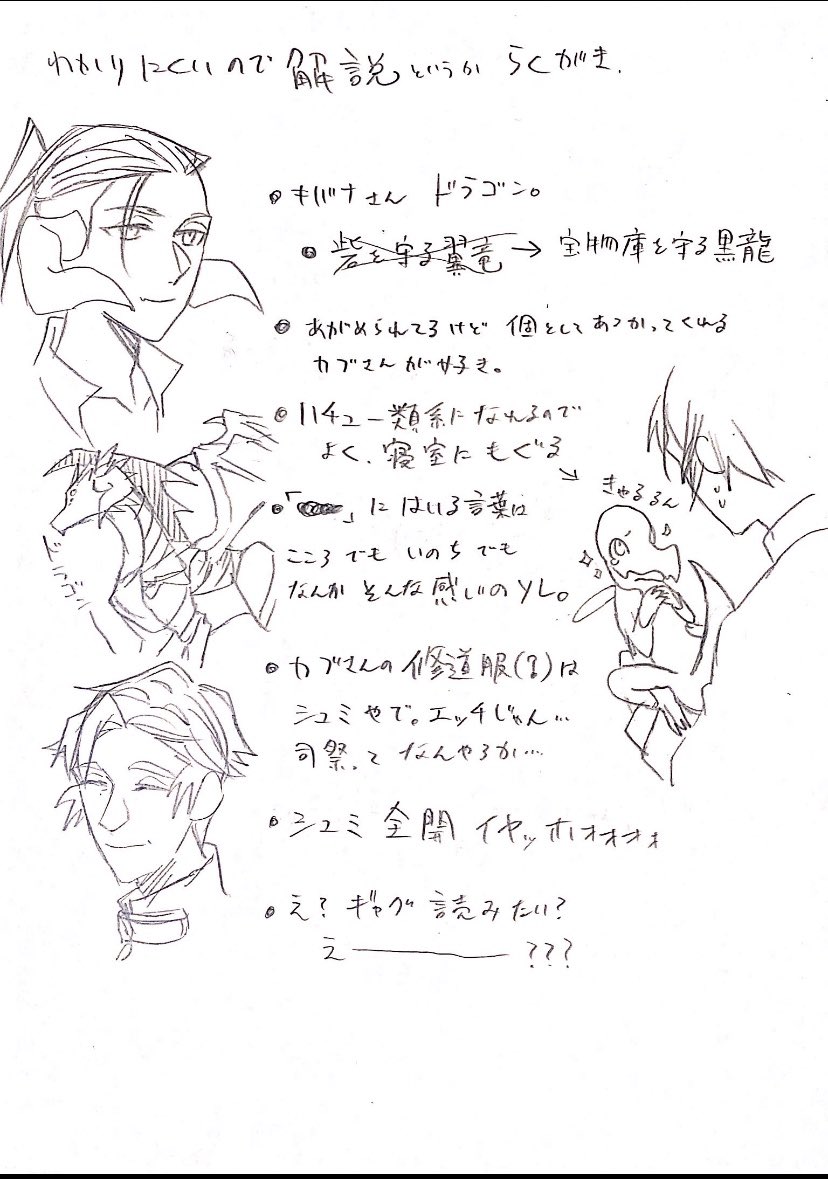 わかりにくいので解説というか らくがき.
キバナさん ドラゴン。
砦を守る翼竜→宝物庫を守る黒龍
あがめられてるけど 個としてあつかってくれる
カブさんが好き。
ハチュー類系になれるので
よく、寝室にもぐる
→
きゃるるん
「　」にはいる言葉は
こころでも いのちでも
なんか そんな感じのソレ。
カブさんの修道服(?)は
シュミやで。エッチじゃん…
司祭って なんやろか…
シュミ全開 イヤッホォォォォ
え? ギャグ 読みたい?
え――――???